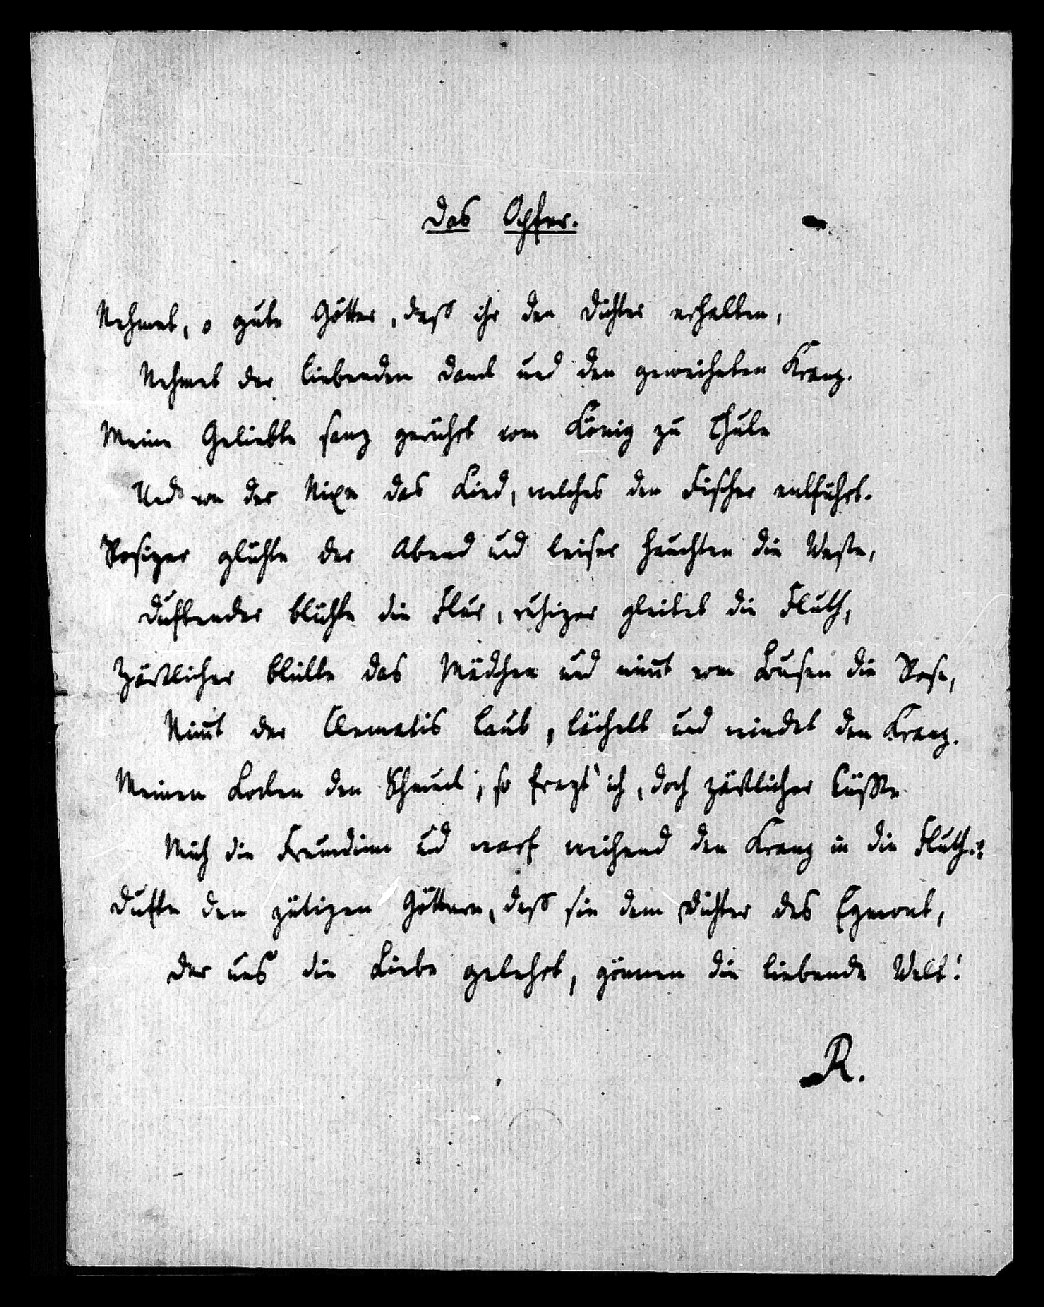 Das Opfer.
Nehmet, o gute Götter, daß ihr den Dichter erhalten,
Nehmet der liebenden Dank und den geweiheten Kranz.
Meine Geliebte sang gerührt vom König zu Thule
Und von der Nixe das Lied, welches den Fischer entführt.
Rosiger glühte der Abend und leiser hauchten die Weste,
Duftender blühte die Flur, ruhiger gleitet die Fluth,
Zärtlicher blikte das Mädchen und nimt vom Busen die Rose,
Nimt der Clematis Laub, lächelt und windet den Kranz.
Meinen Locken den Schmuck; so fragt' ich, doch zärtlicher küßte
Mich die Freundinn und warf weihend den Kranz in die Fluth.:
Dufte den gütigen Göttern, daß sie dem Dichter des Egmont,
Der uns die Liebe gelehrt, gönnen die liebende Welt!
R.